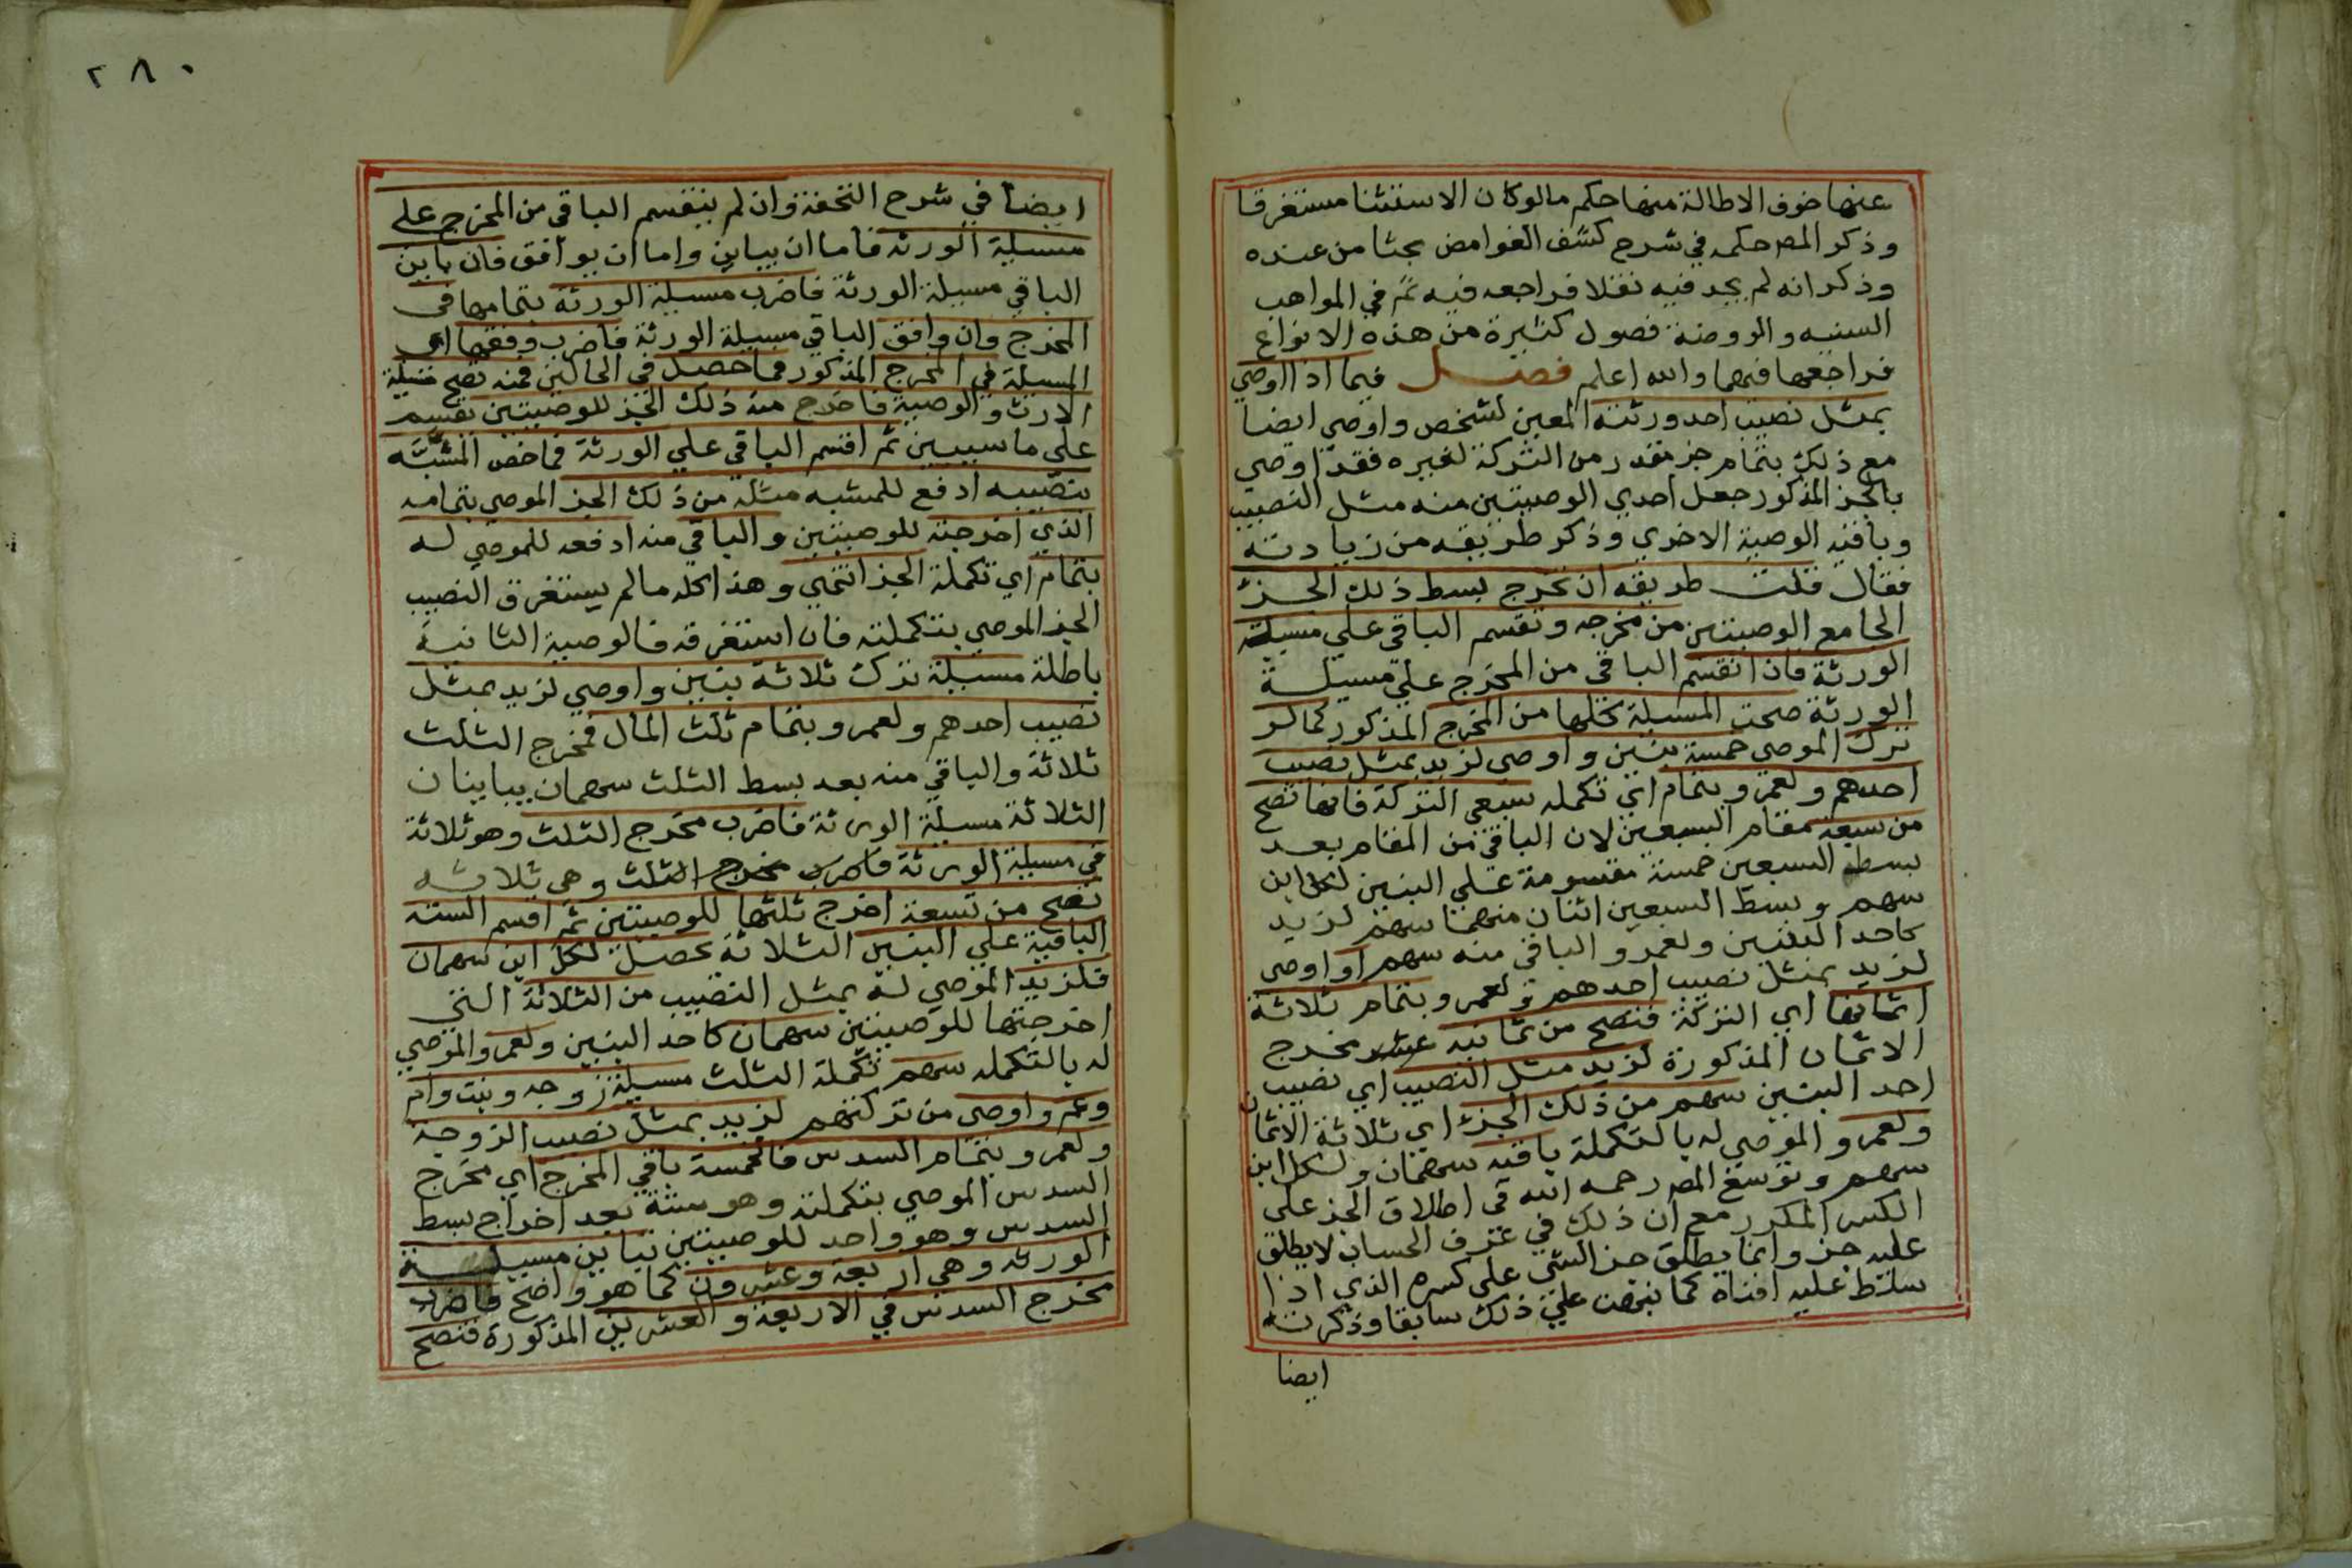 عنها خوف الاطالة منها حكم ما لو كان الاستثنا مستغرقا
وذكر المص حكمه في شرح كشف الغوامض بحثا من عنده
وذكر انه لم يجد فيه نقلا فراجعه فيه ثم في المواهب
السنيه والروضة فصول كثيرة من هذه الانواع
فراجعها فيهما والله اعلم فصل فيما اذا اوصي
بمثل نصيب احد ورثته المعين لشخص واوصي ايضا
مع ذلك بتمام جز مقدر من التركة لغيره فقد اوصي
بالجز المذكور جعل احدي الوصيتين منه مثل النصيب
وباقيه الوصية الاخري وذكر طريقه من زيادته
فقال قلت طريقه ان تخرج بسط ذلك الجزء
الجامع الوصيتين من مخرجه وتقسم الباقي علي مسيلة
الورثة فان انقسم الباقي من المخرج علي مسيلة
الورثة صحت المسيلة كلها من المخرج المذكور كما لو
ترك الموصي خمسة بنين واوصي لزيد بمثل نصيب
احدهم ولعمرو بتمام اي تكمله سبعي التركة فانها تصح
من سبعة مقام السبعين لان الباقي من المقام بعد
بسط السبعين خمسة مقسومة علي البنين لكل ابن
سهم وبسط السبعين اثنان منهما سهم لزيد
كاحد البنين ولعمرو الباقي منه سهم او اوصي
لزيد بمثل نصيب احدهم ولعمرو بتمام ثلاثة
اثمانها اي التركة فتصح من ثمانيه عشر مخرج
الاثمان المذكورة لزيد مثل النصيب اي نصيب
احد البنين سهم من ذلك الجزء اي ثلاثة الاثمان
ولعمرو الموصي له بالتكملة باقيه سهمان ولكل ابن
سهم وتوسع المص رحمه الله في اطلاق الجز علي
الكسر المكرر مع ان ذلك في عرف الحساب لا يطلق
عليه جز وانما يطلق جز الشي علي كسره الذي اذا
سلط عليه افناه كما نبهت علي ذلك سابقا وذكرته
ايضا
٢٨٠
ايضا في شرح التحفة وان لم ينقسم الباقي من المخرج علي
مسيلة الورثه فاما ان يباين واما ان يوافق فان باين
الباقي مسيلة الورثة فاضرب مسيلة الورثة بتمامها في
المخرج وان وافق الباقي مسيلة الورثة فاضرب وفقها اي
المسيلة في المخرج المذكور فما حصل في الحالين فمنه تصح مسيلة
الارث والوصية فاخرج منه ذلك الجز للوصيتين يقسم
علي ما سيبين ثم اقسم الباقي علي الورثة فما خص المشبه
بنصيبه ادفع للمشبه مثله من ذلك الجز الموصي بتمامه
الذي اخرجته للوصيتين والباقي منه ادفعه للموصي له
بتمام اي تكملة الجز انتهي وهذا كله ما لم يستغرق النصيب
الجز الموصي بتكملته فان استغرقه فالوصية الثانية
باطلة مسيلة ترك ثلاثة بنين واوصي لزيد بمثل
نصيب احدهم ولعمرو بتمام ثلث المال فمخرج الثلث
ثلاثة والباقي منه بعد بسط الثلث سهمان يباينان
الثلاثة مسيلة الورثة فاضرب مخرج الثلث وهو ثلاثة
في مسيلة الورثة فاضرب مخرج الثلث وهي ثلاثه
تصح من تسعة اخرج ثلثها للوصيتين ثم اقسم الستة
الباقية علي البنين الثلاثة يحصل لكل ابن سهمان
فلزيد الموصي له بمثل النصيب من الثلاثة التي
اخرجتها للوصيتين سهمان كاحد البنين ولعمرو الموصي
له بالتكمله سهم تكملة الثلث مسيلة زوجه وبنت وام
وعم واوصي من تركتهم لزيد بمثل نصيب الزوجة
ولعمرو بتمام السدس فالخمسة باقي المخرج اي مخرج
السدس الموصي بتكملته وهو ستة بعد اخراج بسط
السدس وهو واحد للوصيتين تباين مسيلة
الورثه وهي اربعة وعشرون كما هو واضح فاضرب
مخرج السدس في الاربعة والعشرين المذكورة فتصح